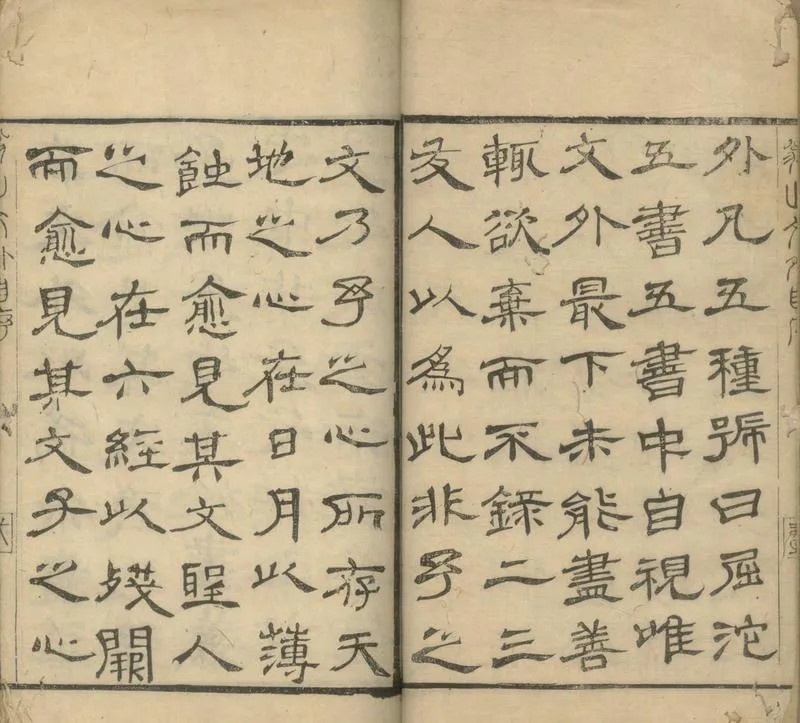 外凡五種號曰屈沱
五書五書中自視唯
文外最下未能盡善
輒欲棄而不錄二三
友人以為此非予之
文乃予之心所存天
地之心在日月以薄
蝕而愈見其文聖人
之心在六經以殘闕
而愈見其文予之心